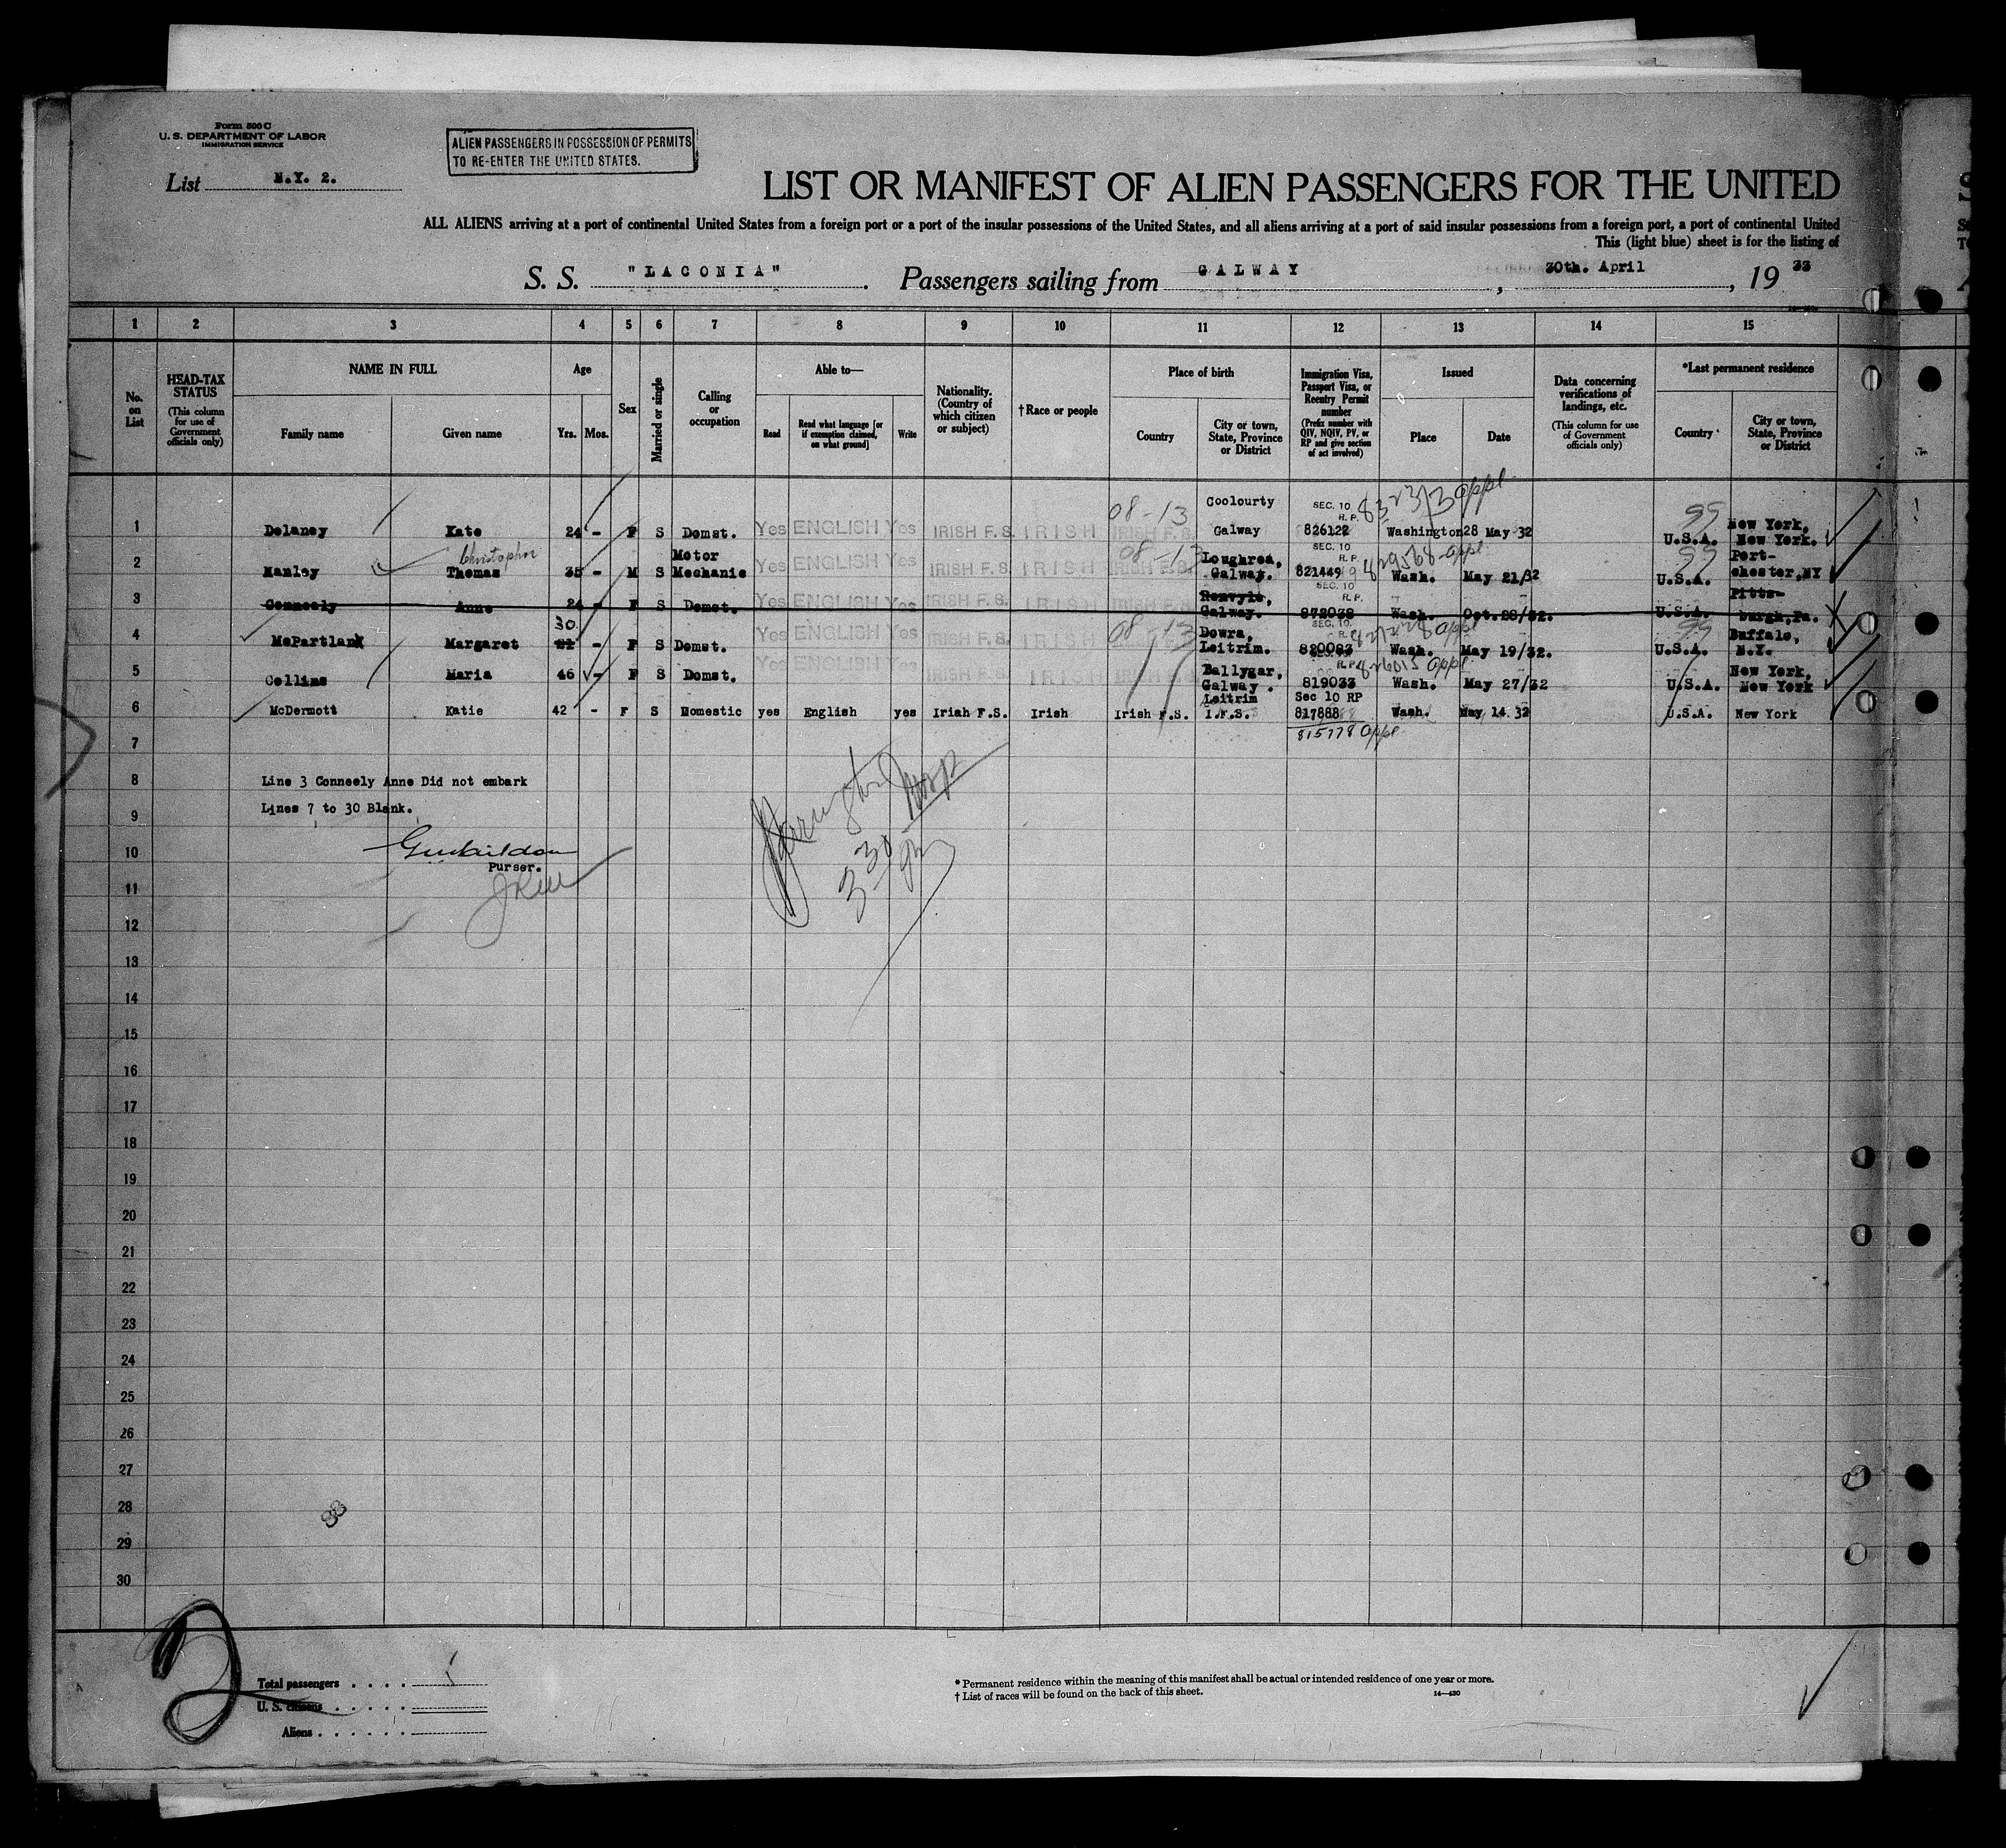 Form 500 C
U. S. DEPARTMENT OF LABOR
IMMIGRATION SERVICE
ALIEN PASSENGERS IN POSSESSION OF PERMITS
TO RE-ENTER THE UNITED STATES.
List N.Y. 2.
LIST OR MANIFEST OF ALIEN PASSENGERS FOR THE UNITED
ALL ALIENS arriving at a port of continental United States from a foreign port or a port of the insular possessions of the United States, and all aliens arriving at a port of said insular possessions from a foreign port, a port of continental United
This (light blue) sheet is for the listing of
S. S. "LACONIA". Passengers sailing from GALWAY, 30th. April, 1933
1 2 3 4 5 6 7 8 9 10 11 12 13 14 15
No. on List
HEAD-TAX STATUS (This column for use of Government officials only)
NAME IN FULL
Family name Given name
Age
Yrs. Mos.
Sex
Married or single
Calling or occupation
Able to—
Read
Read what language [or if exemption claimed, on what ground]
Write
Nationality. (Country of which citizen or subject)
† Race or people
Place of birth
Country
City or town, State, Province or District
Immigration Visa, Passport Visa, or Reentry Permit number (Prefix number with QIV, NQIV, PV, or RP and give section of act involved)
Issued
Place Date
Data concerning verifications of landings, etc. (This column for use of Government officials only)
*Last permanent residence
Country
City or town, State, Province or District
08-13 Coolourty SEC. 10 R. P. 832313 appl 99 New York,
1 Delaney Kate 24 - F S Domst. Yes ENGLISH Yes IRISH F.S. IRISH IRISH F.S. Galway 826122 Washington 28 May 32 U.S.A. New York.
Christopher Motor 08-13 Loughrea, SEC. 10 R. P. 829568 appl 99 Port-
2 Manley Thomas 35 - M S Mechanic Yes ENGLISH Yes IRISH F.S. IRISH IRISH F.S. Galway. 821449 Wash. May 21/32 U.S.A. chester,NY
Renvyle, SEC. 10 R. P. Pitts-
3 Conneely Anne 24 - F S Domst. Yes ENGLISH Yes IRISH F.S. IRISH IRISH F.S. Galway. 872038 Wash. Oct.28/32. U.S.A. burgh,Pa.
30 08-13 Dowra, SEC. 10 appl 99 Buffalo,
4 McPartlan Margaret 21 - F S Domst. Yes ENGLISH Yes IRISH F.S. IRISH Leitrim. 820083 Wash. May 19/32. U.S.A. N.Y.
Ballygar, R. P. 826015 appl New York,
5 Collins Maria 46 - F S Domst. Yes ENGLISH Yes IRISH F.S. IRISH IRISH F.S. Galway. 819033 Wash. May 27/32 U.S.A. New York
Leitrim Sec 10 RP
6 McDermott Katie 42 - F S Domestic yes English yes Irish F.S. Irish Irish F.S. I.F.S. 817888 Wash. May 14 32 U.S.A. New York
815778 appl
7
8 Line 3 Conneely Anne Did not embark
Lines 7 to 30 Blank.
9
10
Purser.
11
3 30
12
13
14
15
16
17
18
19
20
21
22
23
24
25
26
27
28
29
30
Total passengers
U. S. citizens
Aliens
* Permanent residence within the meaning of this manifest shall be actual or intended residence of one year or more.
† List of races will be found on the back of this sheet.
14—430